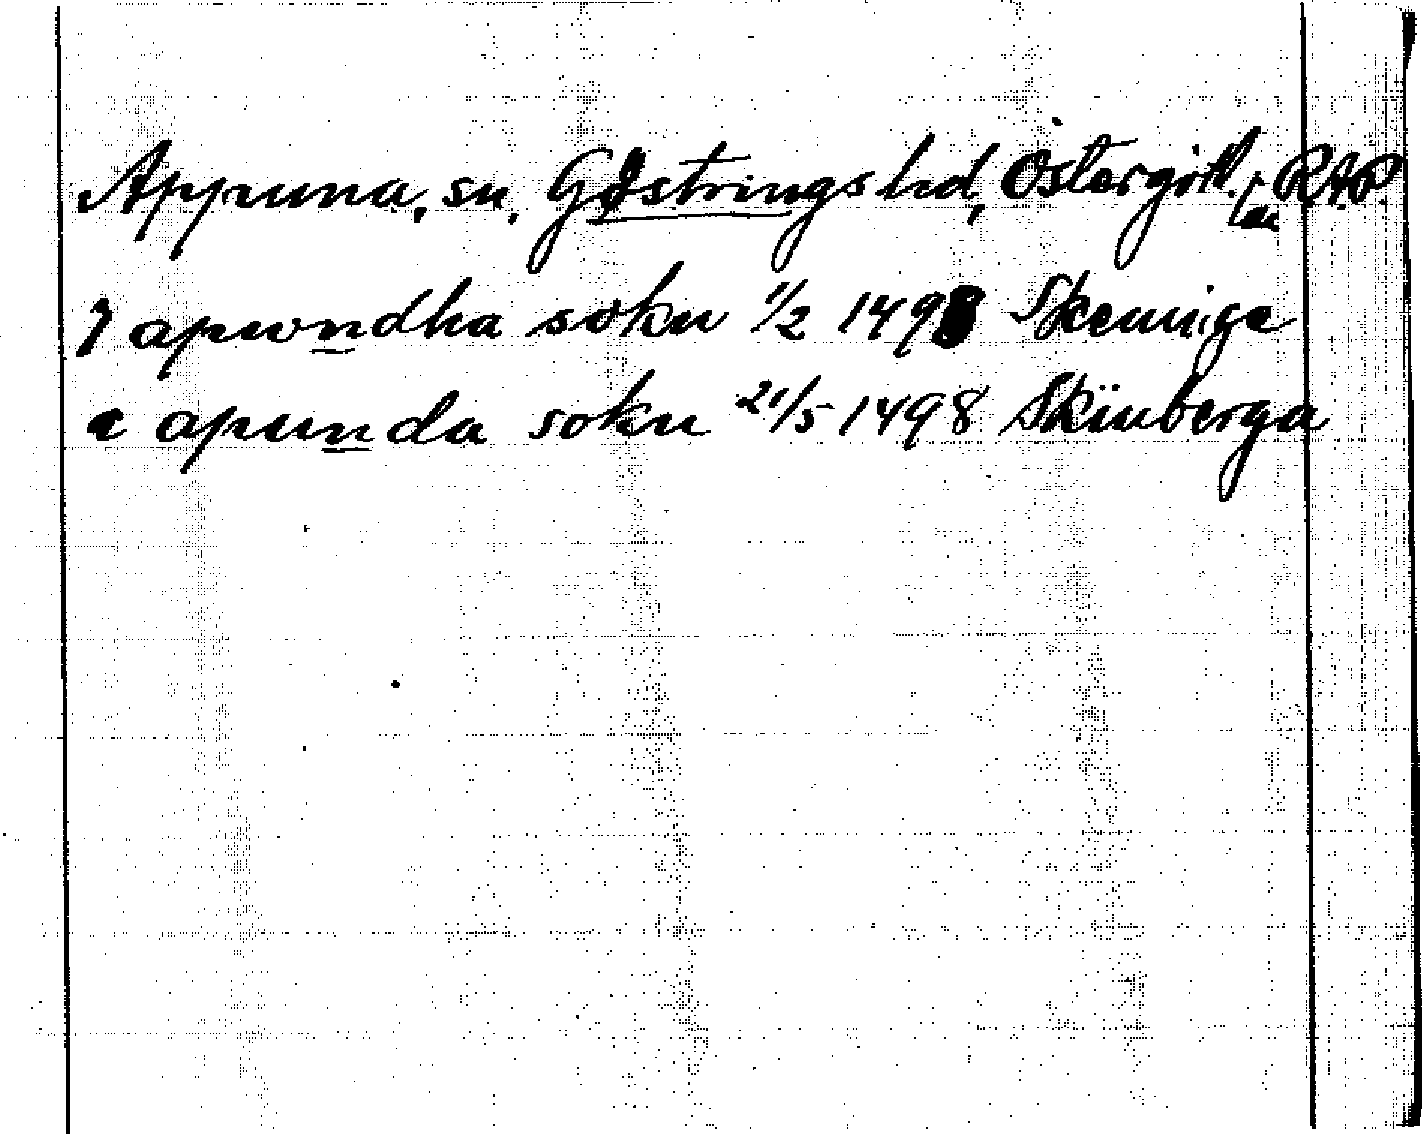 Appuna, sn, Göstrings hd, Östergötl. län RAP.
J apwndha sokn 1/2 1498 Skeninge
a apunda sokn 21/5 1498 Skinberga